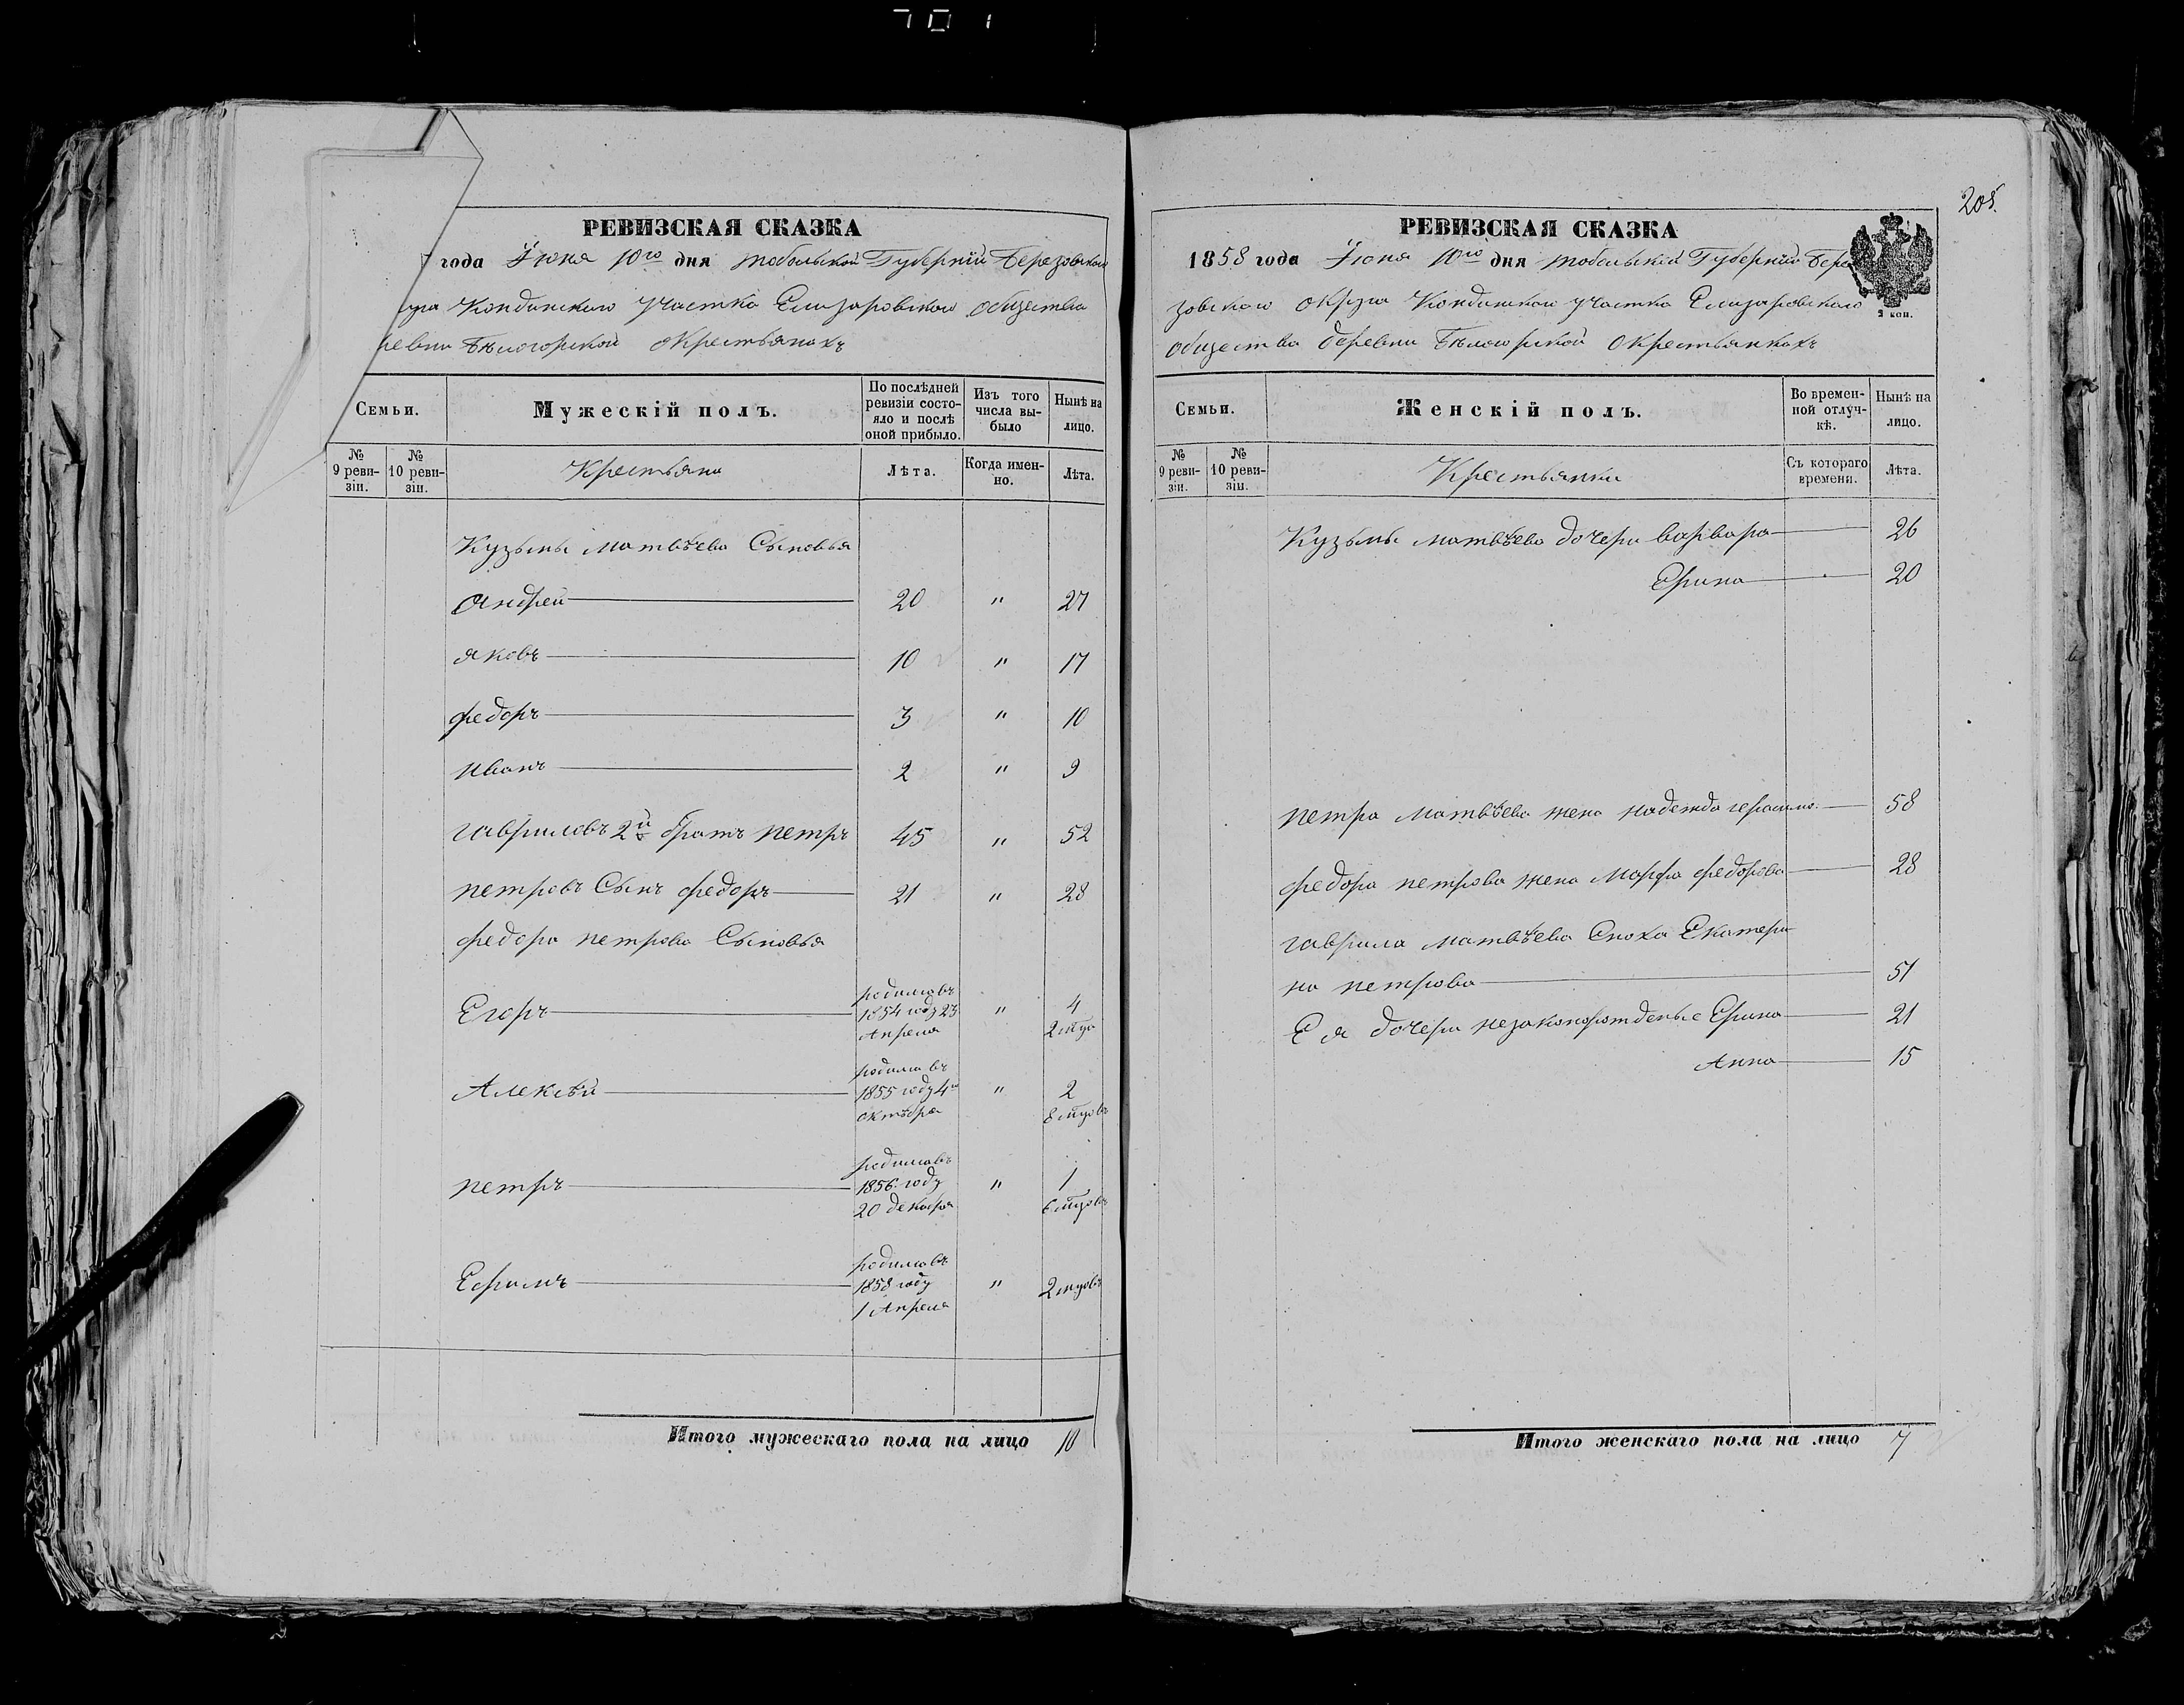 701
РЕВИЗСКАЯ СКАЗКА
года Июня 10го дня Тобольской Губерніи Березовскаго
Кондинскаго участка Елизаровскаго общества
Бѣлогорской окрестьянахъ
Семьи.
Мужескій полъ.
По послѣдней ревизіи состо-
яло и послѣ
оной прибыло.
Изъ того
числа вы-
было
Нынѣ на
лицо.
№
9 реви-
зіи.
№
10 реви-
зіи.
Крестьяна
Лѣта.
Когда имен-
но.
Лѣта.
Кузьмы Матвѣева Сыновья
Андрей 20 " 27
Яковъ 10 " 17
Федоръ 3 " 10
Иванъ 2 " 9
Гавриловъ 2й братъ Петръ 45 " 52
Петровъ Сынъ Федоръ 21 " 28
Федора Петрова Сыновья
Егоръ родился въ 1854 году 23 Апреля " 4
Алексѣй родился въ 1855 году 4 октября " 2
Петръ родился въ 1856 году 20 декабря " 1
Ефимъ родился въ 1858 году 1 Апреля " 2
Итого мужескаго пола на лицо 10
205.
РЕВИЗСКАЯ СКАЗКА
1858 года Июня 10го дня Тобольской Губерніи Бере
зовскаго округа Кондинскаго участка Елизаровскаго
2 коп.
общества деревни Бѣлогорской окрестьянкахъ
Семьи.
Женскій полъ.
Во времен-
ной отлуч-
кѣ.
Нынѣ на
лицо.
№
9 реви-
зіи.
№
10 реви-
зіи.
Крестьянки
Съ котораго
времени.
Лѣта.
Кузьмы Матвѣева дочери Варвара 26
Ерина 20
Петра Матвѣева жена Надежда Герасимо. 58
Федора Петрова жена Марфа Федорова 28
Гаврила Матвѣева Сноха Екатери
на Петрова 51
Ея дочери незаконорожденые Ерина 21
Анна 15
Итого женскаго пола на лицо 7